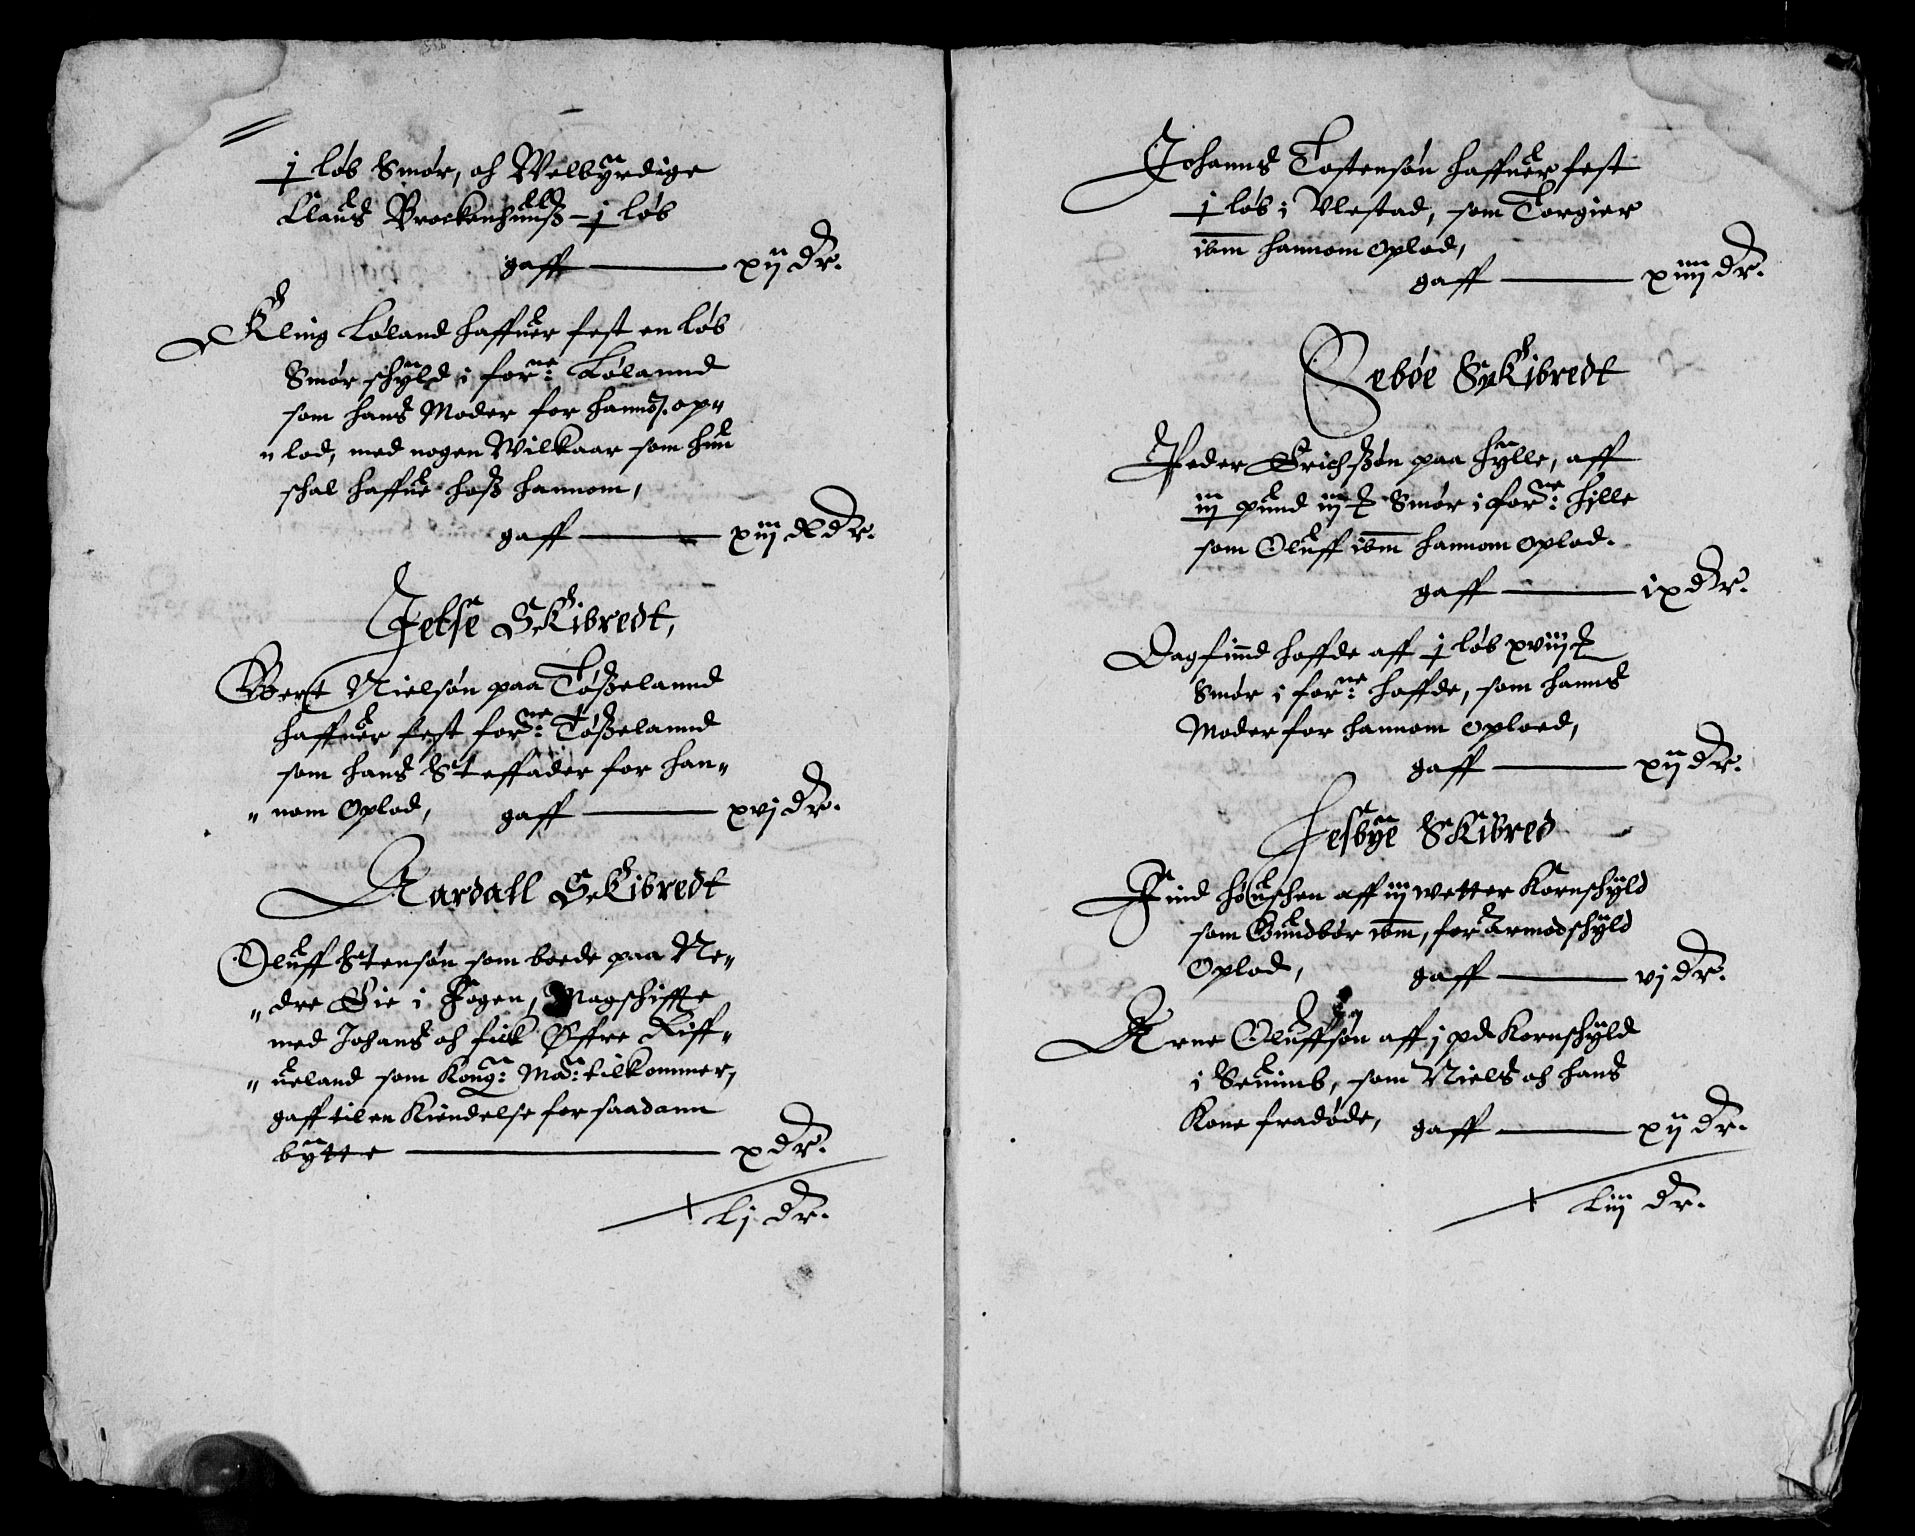 j løb Smør, och Welbyrdige
Claus Brockenhuus – j løb
gaff — xij dr.
Kling Løland haffuer fest en løb
Smør schyld i forne: Lølannd
som hans Moder for hannom op„
„lod, med nogen Wilkaar som hun
schal haffue hoss hannom,
gaff — xiij R dr.
Jelse Skibredt,
Bert Nielsøn paa Tøsselannd
haffuer fest forne: Tøsselannd
som hans Steffader for han„
„nom oplod, gaff — xvj dr.
Aardall Skibredt
Oluff Stensøn som boede paa Ne„
„dre Eie i Fogen, Magschiffte
med Johans och fick Øffre Riff„
„ueland som Kong: Ma: tilkommer,
gaff til en Kiendelse for saadann
bytte — x dr.
Lj dr.
Johanns Tostensøn haffuer fest
j løb i Vlestad, som Torgier
ibm hannom oplod,
gaff — xiiij dr.
Sebøe Skibredt
Peder Erichssøn paa Hylle, aff
iij pund iij Smør i forne: Hylle
som Oluff ibm hannom oplod.
gaff — ix dr.
Dagfinnd Haffde aff j løb xviij
Smør i forne: Haffde, som hanns
Moder for hannom oploed,
gaff — xij dr.
Hesbye Skibred
Find Høuschen aff iij wetter Kornschyld
som Gundbør ibm, for Armodschyld
Oplod, gaff — vj dr.
Arne Oluffsøn aff j pd Kornschyld
i Seuimb, som Niels och hans
Kone fradøde, gaff — xij dr.
Liij dr.